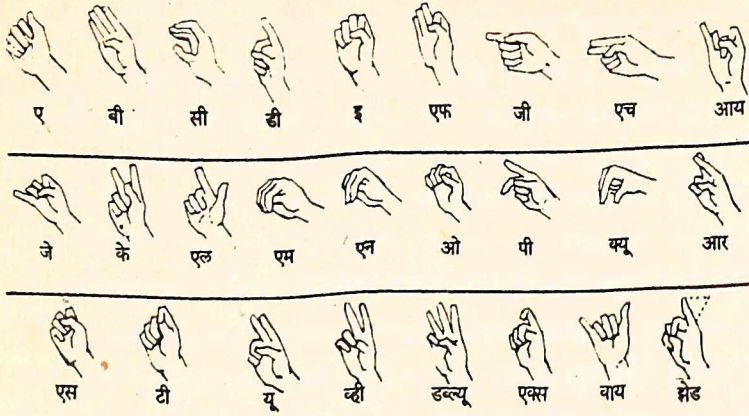 ए बी सी डी इ एफ जी एच आय
जे के एल एम एन ओ पी क्यू आर
एस टी यू व्ही डब्ल्यू एक्स वाय झेड